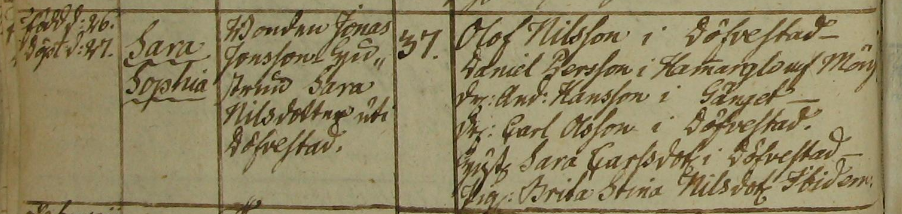 född d: 26.
Döpt d: 27.
Sara
Sophia
Bonden Jonas
Jonsson Hus„
strun Sara
Nilsdotter uti
Döfvestad.
37.
Olof Nilsson i Döfvestad
Daniel Persson i Hamarglouf
Dr: And: Hansson i Gånget
Dr: Carl Olsson i Döfvestad.
Hust: Sara Carlsdot: i Döfvestad
Pig: Brita Stina Nilsdot: Ibidem.